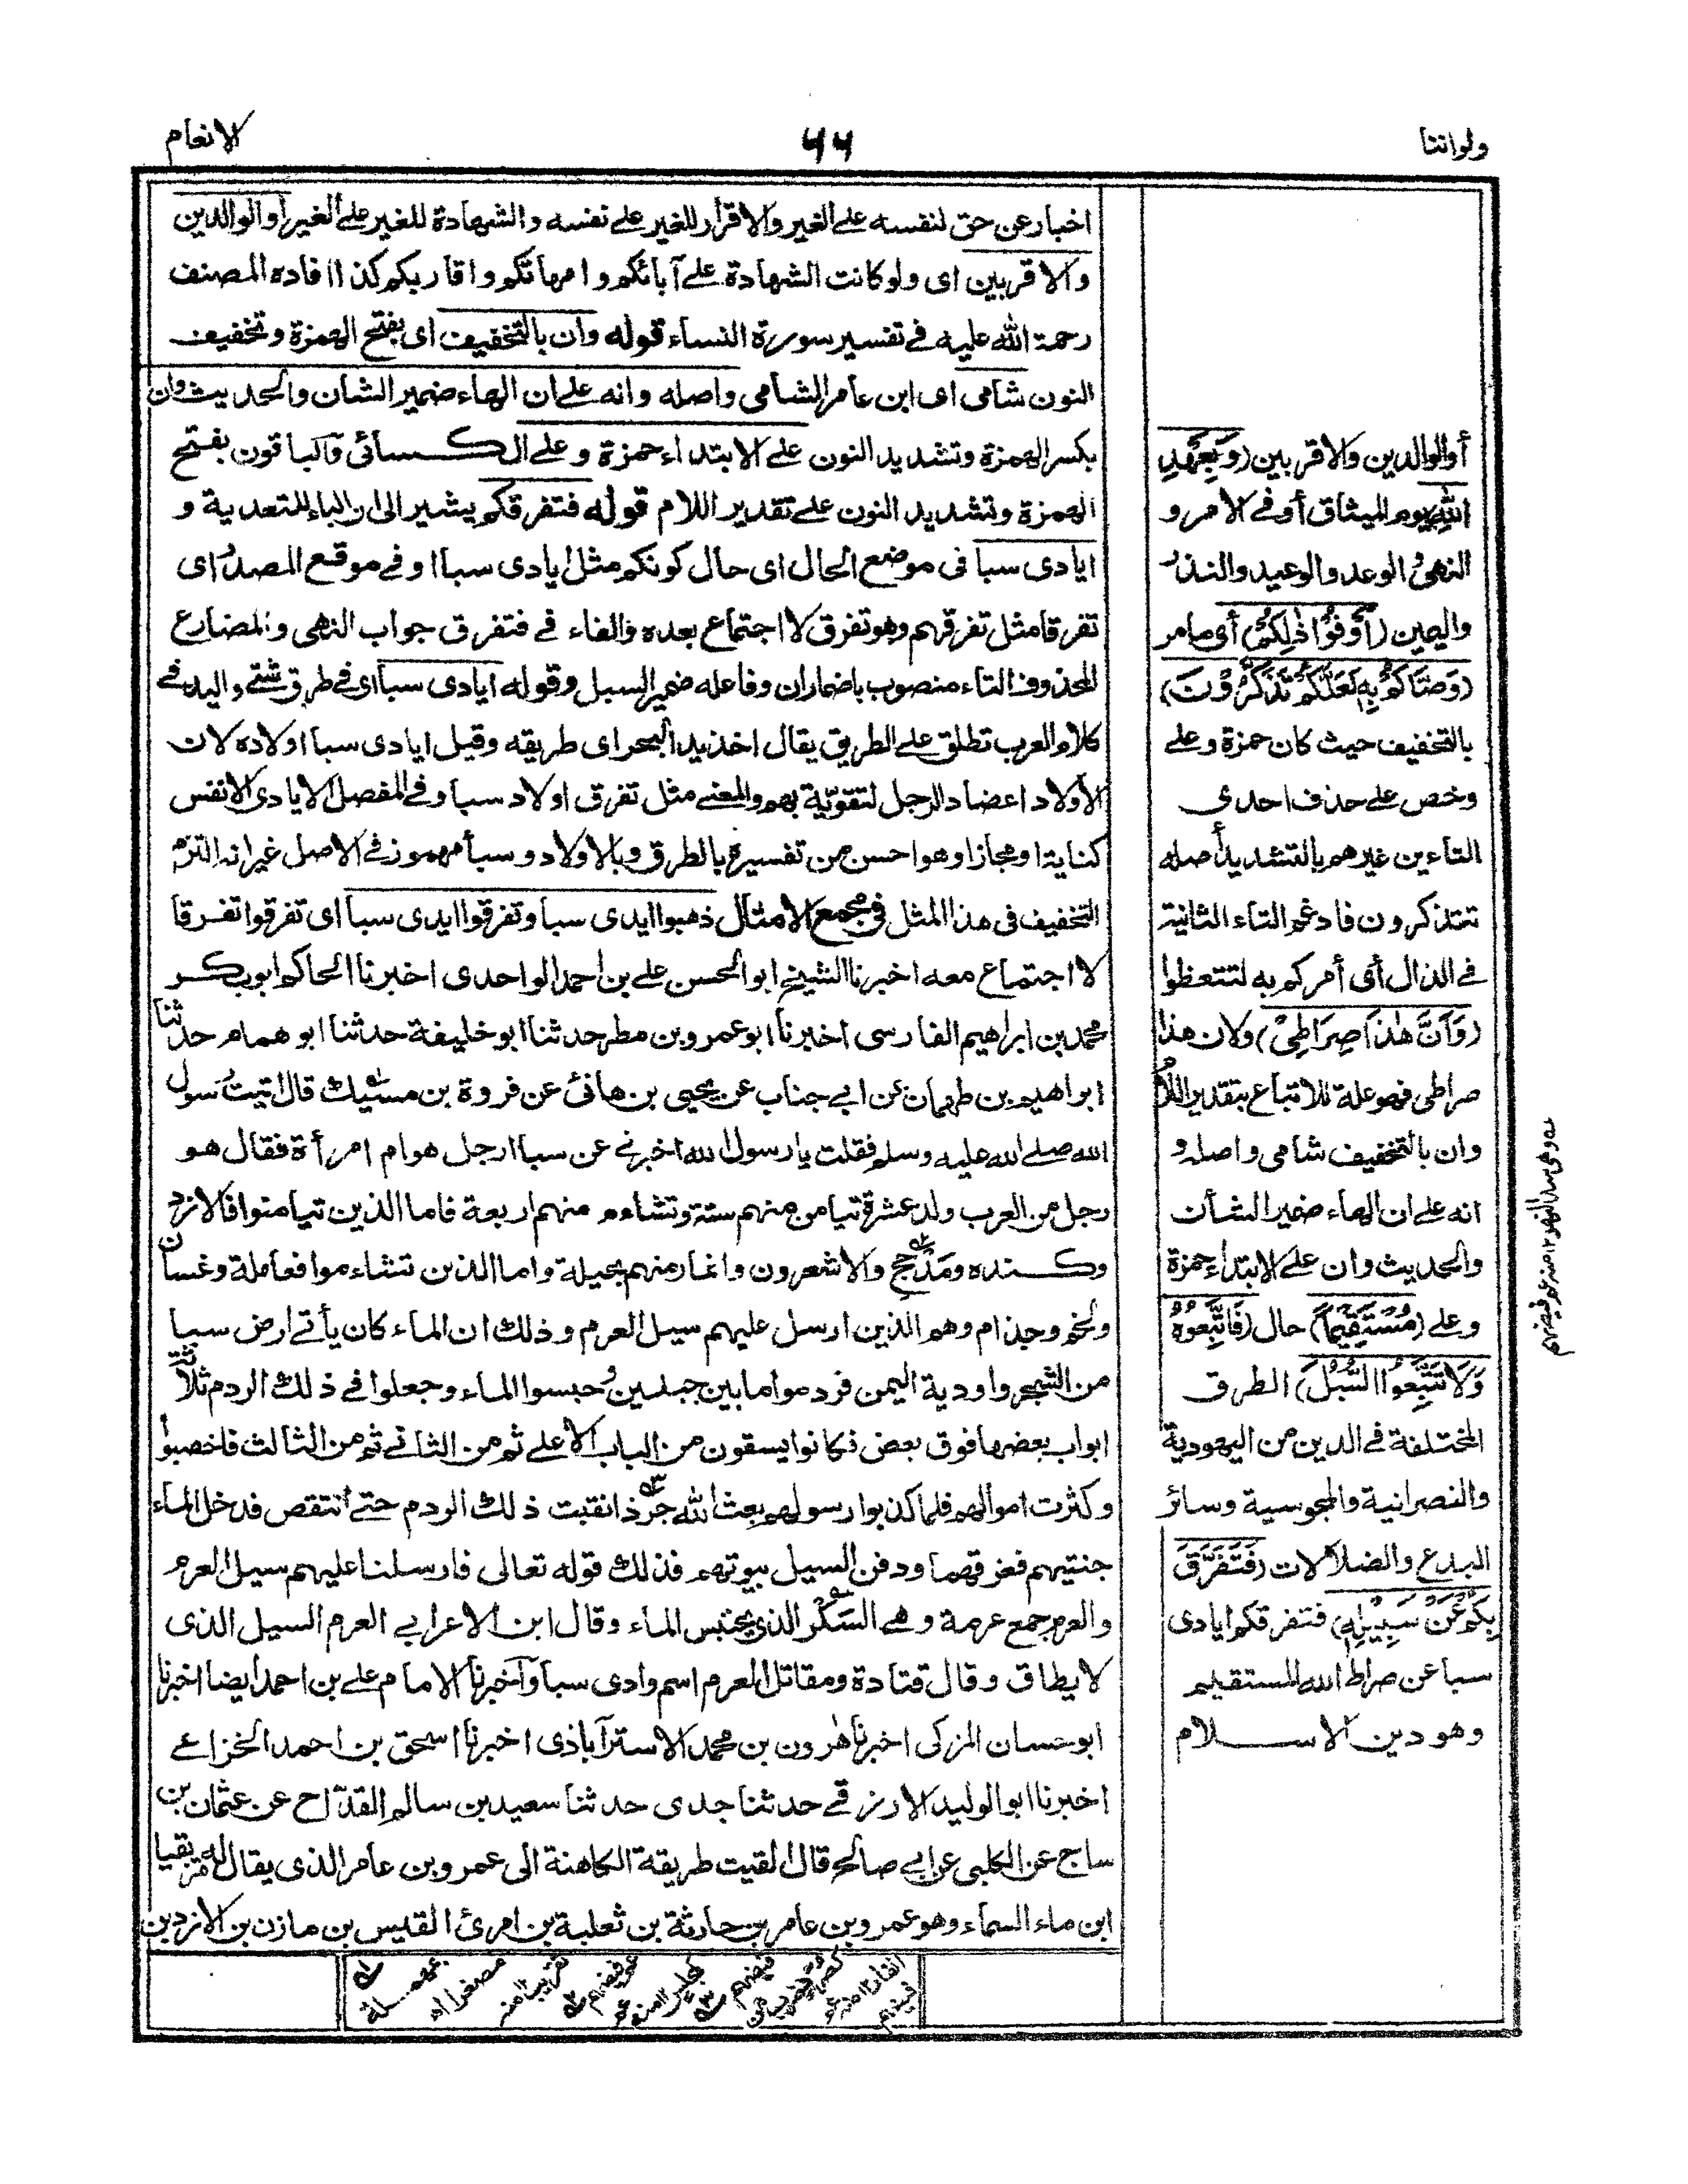 ولواننا
٦٦
الانعام
أوالوالدين والاقربين (وَبِعَهْدِ
اللهِ) يوم الميثاق أو في الامر و
النهي والوعد والوعيد والنذر
واليمين (أَوْفُوْا ذٰلِكُمْ) أي ما مر
(وَصّٰاكُمْ بِهٖ لَعَلَّكُمْ تَذَكَّرُوْنَ)
بالتخفيف حيث كان حمزة وعلى
وخص على حذف احدى
التاءين غيرهم بالتشديد أصله
تتذكرون فادغم التاء الثانية
في الذال أي أمركم به لتتعظوا
(وَاَنَّ هٰذَا صِرَاطِيْ) ولان هذا
صراطى فهو علة للاتباع بتقدير اللام
وان بالتخفيف شامى واصله و
انه على ان الهاء ضمير الشأن
والحديث وان على الابتداء حمزة
وعلى (مُسْتَقِيْمًا) حال (فَاتَّبِعُوْهُ
وَلَا تَتَّبِعُوا السُّبُلَ) الطرق
المختلفة في الدين من اليهودية
والنصرانية والمجوسية وسائر
البدع والضلالات (فَتَفَرَّقَ
بِكُمْ عَنْ سَبِيْلِهٖ) فتفرقكم ايادى
سبا عن صراط الله المستقيم
وهو دين الاسلام
اخبار عن حق لنفسه على الغير والاقرار للغير على نفسه والشهادة للغير على الغير أو الوالدين
والاقربين اى ولو كانت الشهادة على آبائكم وامهاتكم واقاربكم كذا افاده المصنف
رحمة الله عليه في تفسير سورة النساء قوله وان بالتخفيف اى بفتح الهمزة وتخفيف
النون شامى اى ابن عامر الشامى واصله وانه على ان الهاء ضمير الشان والحديث وان
بكسر الهمزة وتشديد النون على الابتداء حمزة وعلى الكسائى والباقون بفتح
الهمزة وتشديد النون على تقدير اللام قوله فتفرقكم يشير الى ان الباء للتعدية و
ايادى سبا فى موضع الحال اى حال كونكم مثل ايادى سبا او فى موقع المصدر اى
تفرقا مثل تفرقهم وهو تفرق لا اجتماع بعده والفاء في فتفرق جواب النهى والمضارع
المحذوف التاء منصوب باضمار ان وفاعله ضمير السبل وقوله ايادى سبا اى في طرق شتى واليد فى
كلام العرب تطلق على الطريق يقال اخذ يد البحر اى طريقه وقيل ايادى سبا اولاده لان
الأولاد اعضاد الرجل لتقوّيه بهم والمعنى مثل تفرق اولاد سبا وفى المفصل الايادى الانفس
كناية او مجازا وهو احسن من تفسيره بالطرق وبالاولاد وسبأ مهموز فى الاصل غير انه التزم
التخفيف فى هذا المثل فى مجمع الامثال ذهبوا ايدى سبا وتفرقوا ايدى سبا اى تفرقوا تفرقا
لا اجتماع معه اخبرنا الشيخ ابو الحسن على بن احمد الواحدى اخبرنا الحاكم ابو بكر
محمد بن ابراهيم الفارسى اخبرنا ابو عمرو بن مطر حدثنا ابو خليفة حدثنا ابو همام حدثنا
ابراهيم بن طهمان عن ابى جناب عن يحيى بن هانئ عن فروة بن مسيك قال اتيت رسول
الله صلى الله عليه وسلم فقلت يا رسول الله اخبرنى عن سبا ارجل هو ام امرأة فقال هو
رجل من العرب ولد عشرة تيامن منهم ستة وتشاءم منهم اربعة فاما الذين تيامنوا فالازد
وكنده ومَذْحِج والاشعرون وانمار منهم بجيلة واما الذين تشاءموا فعاملة وغسان
ولخم وجذام وهم الذين ارسل عليهم سيل العرم وذلك ان الماء كان يأتى ارض سبا
من الشحر واودية اليمن فردموا ما بين جبلين وحبسوا الماء وجعلوا فى ذلك الردم ثلاثة
ابواب بعضها فوق بعض فكانوا يسقون من الباب الاعلى ثم من الثانى ثم من الثالث فاخصبوا
وكثرت اموالهم فلما كذبوا رسولهم بعث الله جرذا نقبت ذلك الردم حتى انتقض فدخل الماء
جنتيهم فغرقهما ودفن السيل بيوتهم فذلك قوله تعالى فارسلنا عليهم سيل العرم
والعرم جمع عرمة وهى السَكْر الذى يحتبس الماء وقال ابن الاعرابى العرم السيل الذى
لا يطاق وقال قتادة ومقاتل العرم اسم وادى سبا واخبرنا الامام على بن احمد ايضا اخبرنا
ابو حسان المزكى اخبرنا هٰرون بن محمد الاستراباذى اخبرنا اسحق بن احمد الخزاعى
اخبرنا ابو الوليد الازرقى حدثنا جدى حدثنا سعيد بن سالم القدّاح عن عثمان بن
ساج عن الكلبى عن ابى صالح قال القيت طريقة الكاهنة الى عمرو بن عامر الذى يقال له مزيقيا
ابن ماء السماء وهو عمرو بن عامر بن حارثة بن ثعلبة بن امرئ القيس بن مازن بن الازد بن